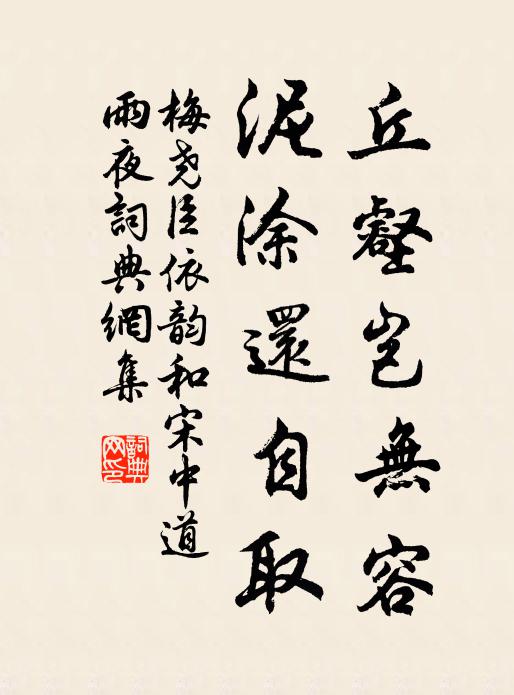 丘壑豈無容
泥涂還自取
梅堯臣依韵和宋中道
雨夜詞典網集
詞典网印